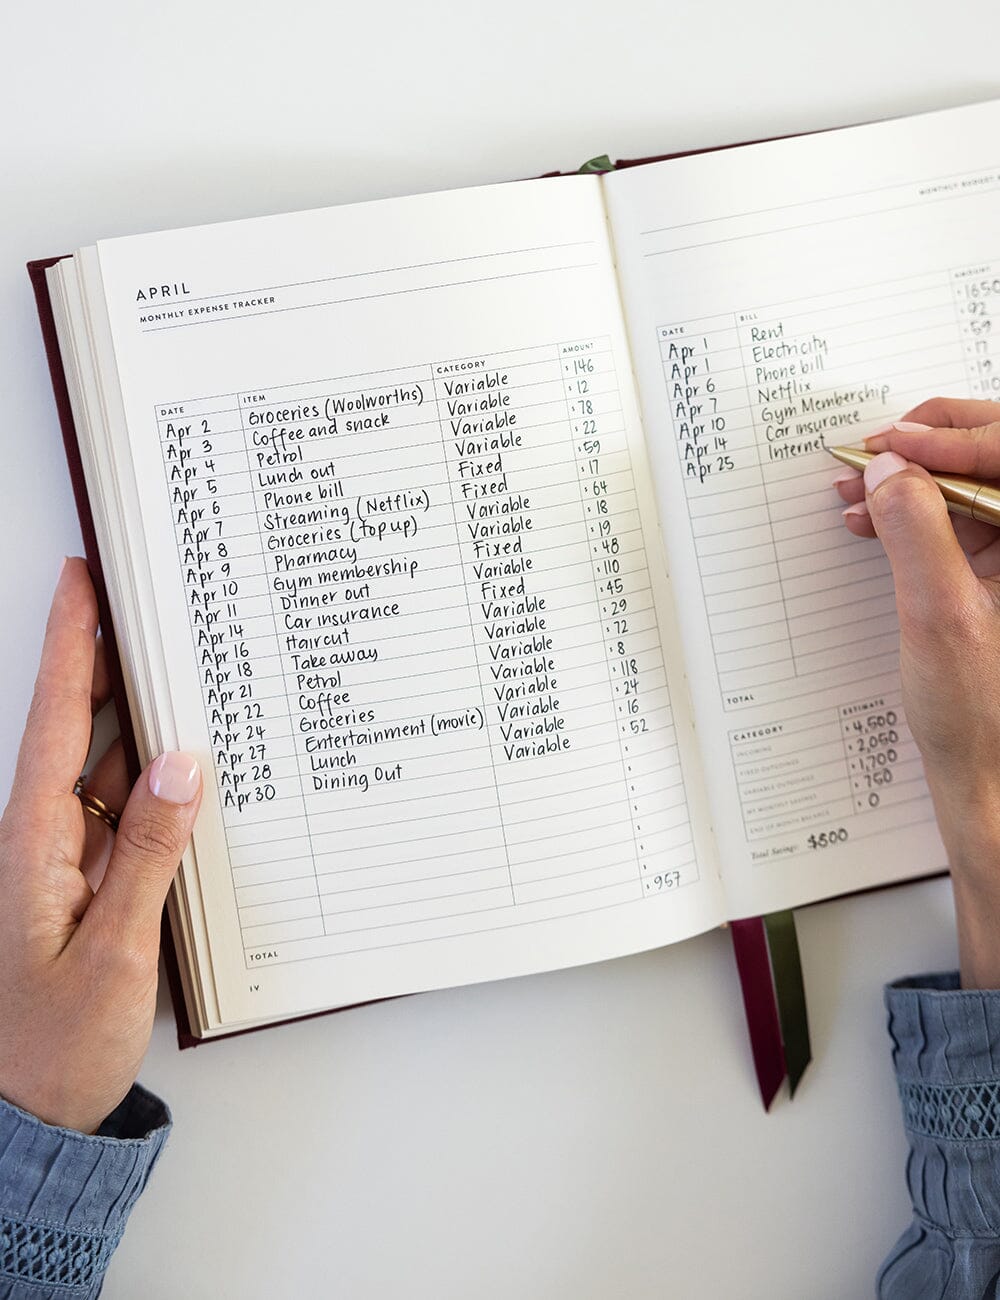 APRIL
MONTHLY EXPENSE TRACKER
DATE ITEM CATEGORY AMOUNT
Apr 2 Groceries (Woolworths) Variable $146
Apr 3 Coffee and snack Variable $12
Apr 4 Petrol Variable $78
Apr 5 Lunch out Variable $22
Apr 6 Phone bill Fixed $59
Apr 7 Streaming (Netflix) Fixed $17
Apr 8 Groceries (top up) Variable $64
Apr 9 Pharmacy Variable $18
Apr 10 Gym membership Fixed $19
Apr 11 Dinner out Variable $48
Apr 14 Car insurance Fixed $110
Apr 16 Haircut Variable $45
Apr 18 Takeaway Variable $29
Apr 21 Petrol Variable $72
Apr 22 Coffee Variable $8
Apr 24 Groceries Variable $118
Apr 27 Entertainment (movie) Variable $24
Apr 28 Lunch Variable $16
Apr 30 Dining Out Variable $52
TOTAL $957
IV
MONTHLY BUDGET
DATE BILL AMOUNT
Apr 1 Rent $1650
Apr 1 Electricity $92
Apr 6 Phone bill $59
Apr 7 Netflix $17
Apr 10 Gym Membership $19
Apr 14 Car insurance $110
Apr 25 Internet
TOTAL
CATEGORY ESTIMATE
INCOMING $4,500
FIXED OUTGOINGS $2,050
VARIABLE OUTGOINGS $1,700
MY MONTHLY SAVINGS $750
END OF MONTH BALANCE $0
Total Savings: $500